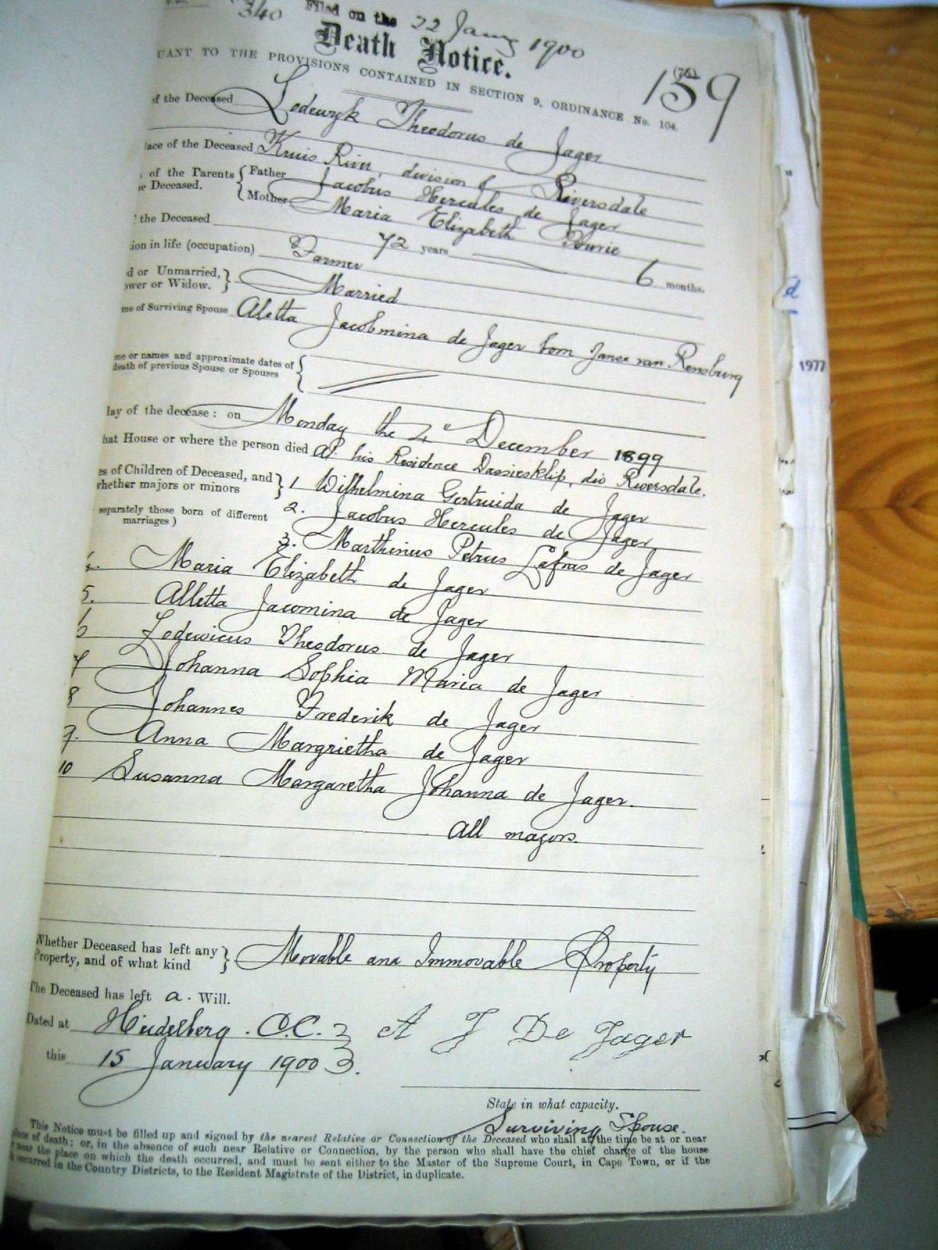 340 Filed on the 22 Jany 1900
Death Notice.
UANT TO THE PROVISIONS CONTAINED IN SECTION 9, ORDINANCE No. 104.
159
of the Deceased Lodewyk Theodorus de Jager
lace of the Deceased Kruis River, division of Riversdale
of the Parents Father Jacobus Hercules de Jager
e Deceased. Mother Maria Elizabeth Fourie
the Deceased 72 years 6 months.
ion in life (occupation) Farmer
d or Unmarried,
wer or Widow. } Married
me of Surviving Spouse Aletta Jacobmina de Jager born Janse van Rensburg
me or names and approximate dates of
death of previous Spouse or Spouses
day of the decease: on Monday the 4th December 1899
hat House or where the person died At his Residence Dassiesklip, div Riversdale.
es of Children of Deceased, and
whether majors or minors } 1 Wilhelmina Gertruida de Jager
separately those born of different
marriages) 2. Jacobus Hercules de Jager
3. Marthinus Petrus Lafras de Jager
4. Maria Elizabeth de Jager
5. Alletta Jacomina de Jager
6 Lodewicus Theodorus de Jager
7 Johanna Sophia Maria de Jager
8 Johannes Frederik de Jager
9. Anna Margrietha de Jager
10 Susanna Margaretha Johanna de Jager.
All majors.
Whether Deceased has left any
Property, and of what kind } Movable and Immovable Property
The Deceased has left a Will.
Dated at Heidelberg. C.C. A J De Jager
this 15 January 1900
State in what capacity.
Surviving Spouse.
This Notice must be filled up and signed by the nearest Relative or Connection of the Deceased who shall at the time be at or near
place of death; or, in the absence of such near Relative or Connection, by the person who shall have the chief charge of the house
near the place on which the death occurred, and must be sent either to the Master of the Supreme Court, in Cape Town, or if the
occurred in the Country Districts, to the Resident Magistrate of the District, in duplicate.
1977